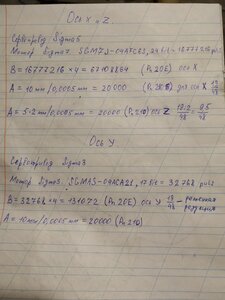 Ось X и Z.
Сервопривод Sigma5
Мотор Sigma7. SGM7J-04AFC6S, 24 bit - 16777216 puls
B = 16777216 × 4 = 67108864 (Pn20E) ось X
A = 10 мм / 0,0005 мм = 20 000 (Pn210) для оси X
A = 5·2 мм / 0,0005 мм = 20000 (Pn210) ось Z
Ось Y
Сервопривод Sigma3
Мотор Sigma3. SGMAS-04ACA21, 17 bit = 32768 puls
B = 32768 × 4 = 131072 (Pn20E) ось Y - ременная редукция
A = 10 мм / 0,0005 мм = 20000 (Pn210)